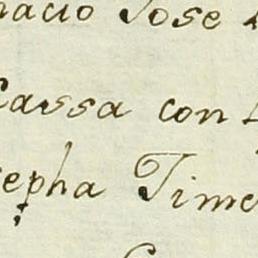 nacio Jose
Cassa con
sepha Time